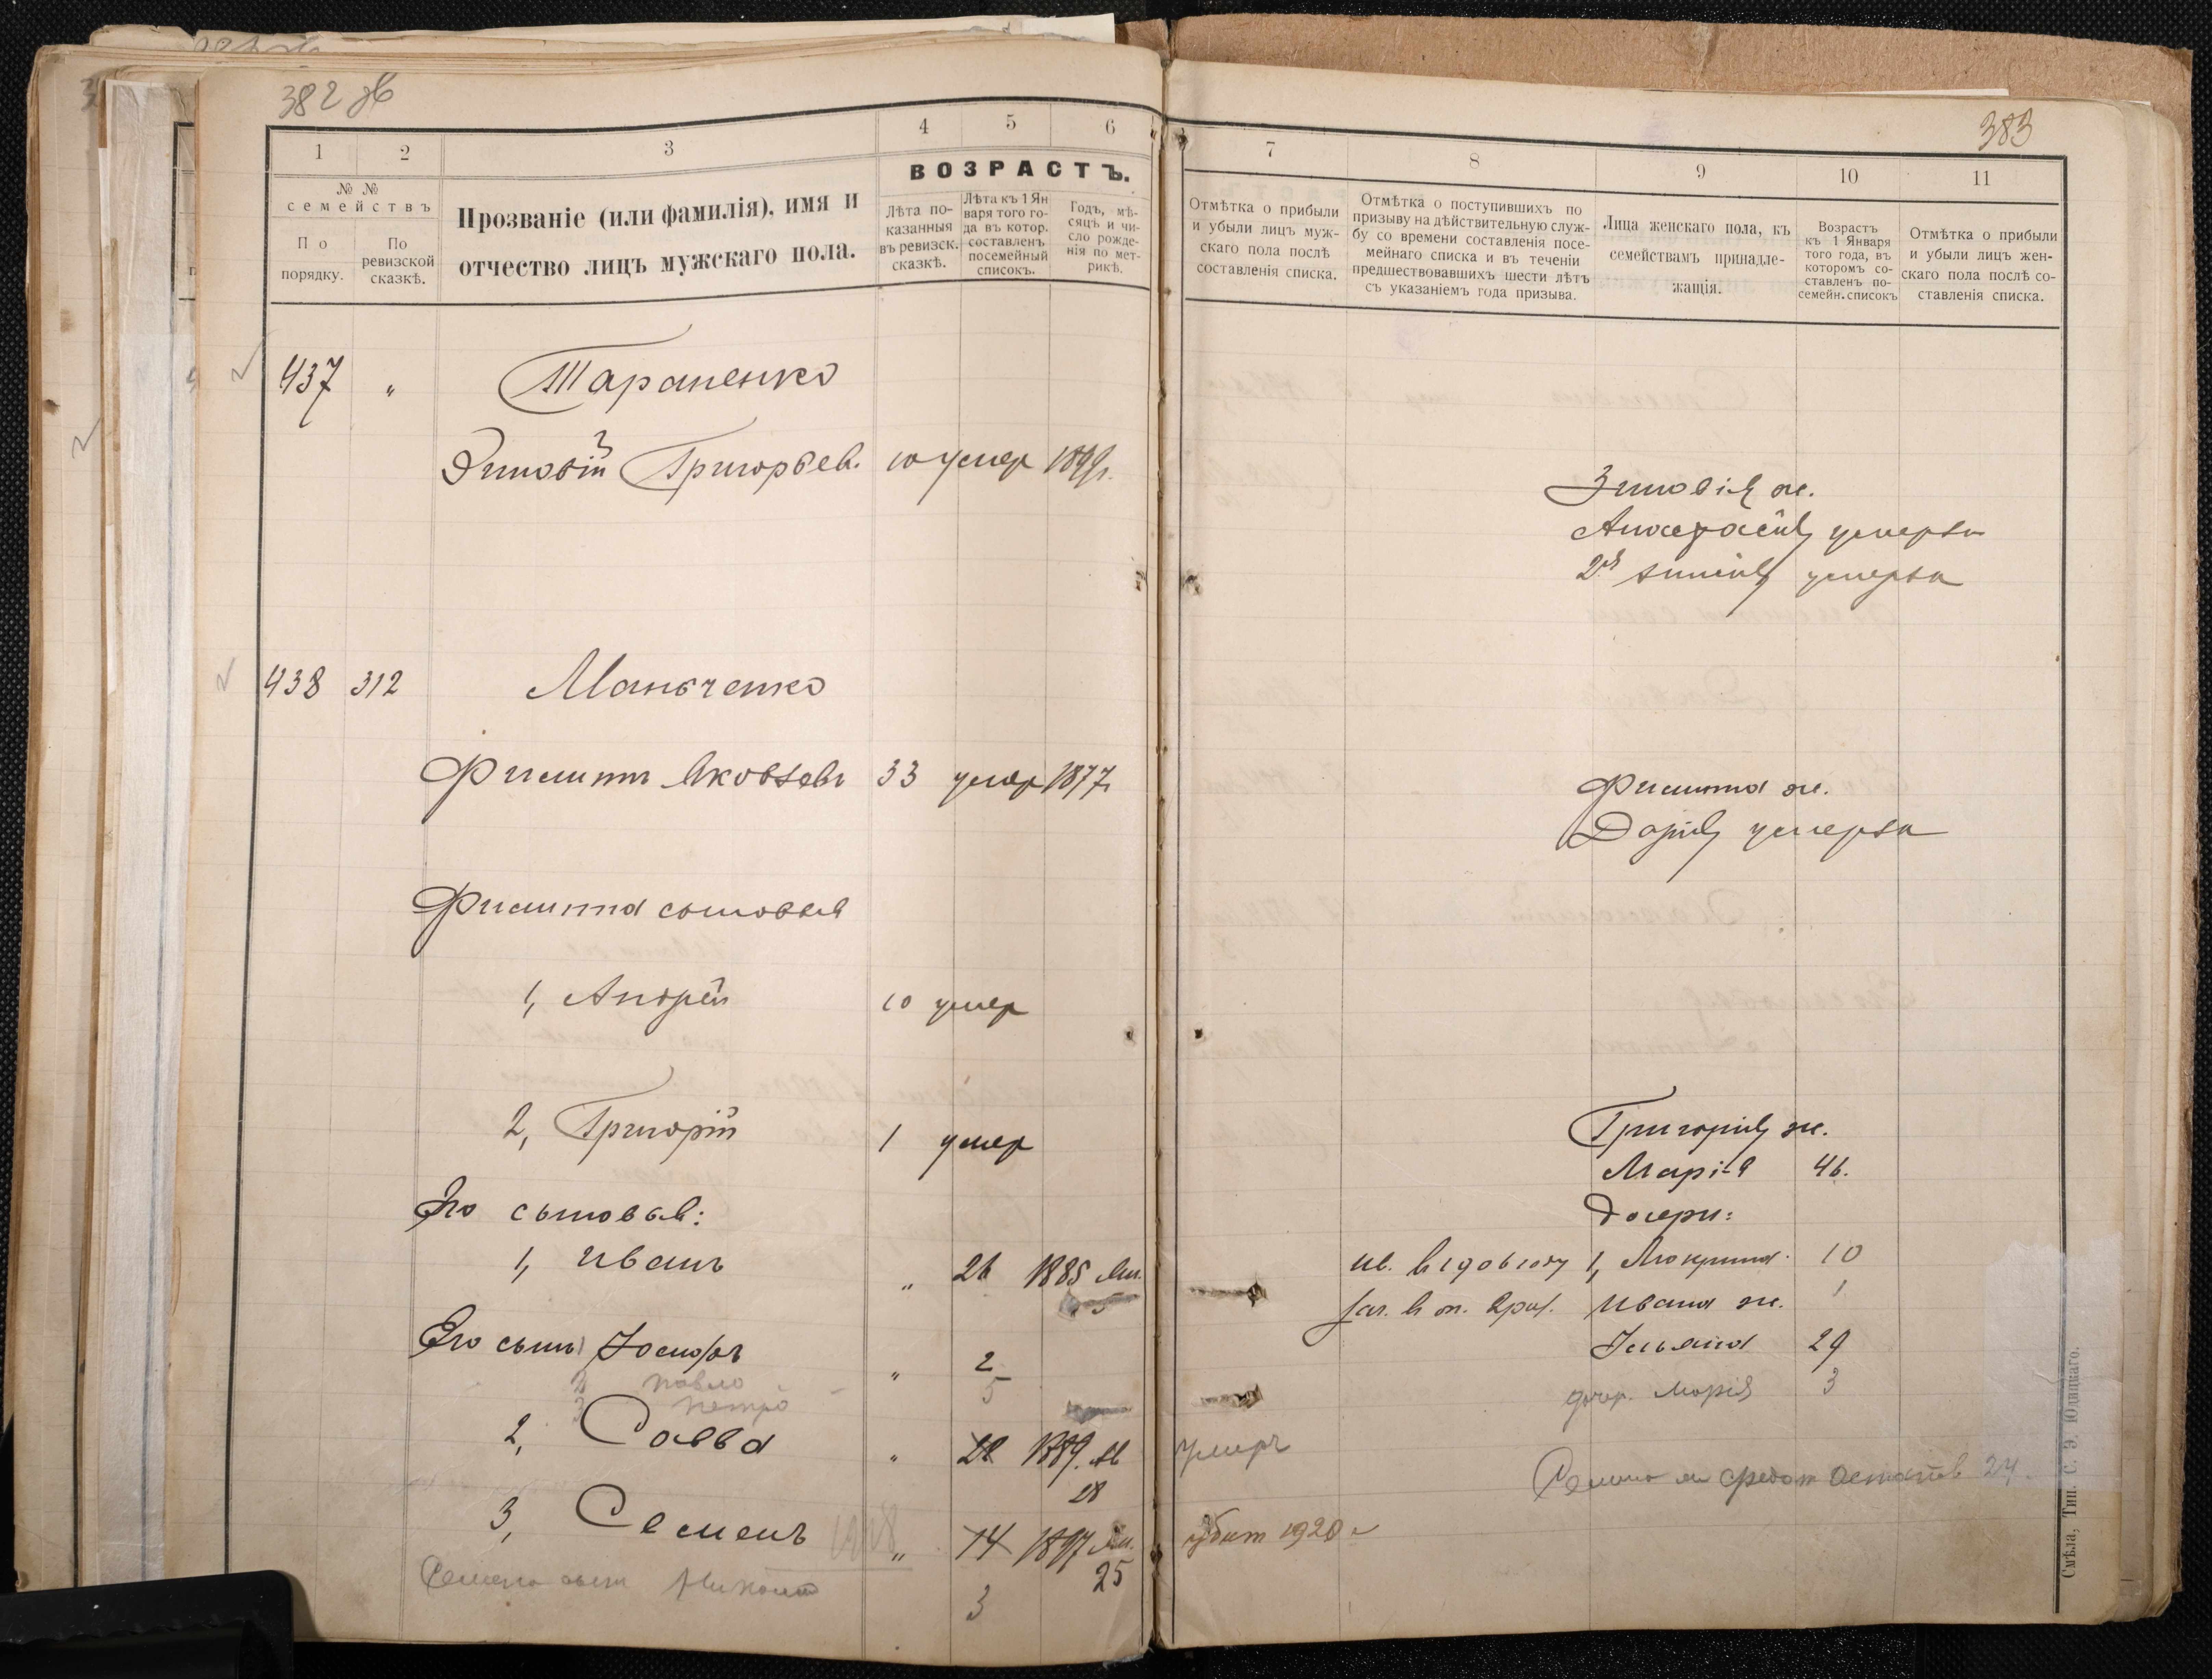 382 об
1
2
3
4
5
6
№ №
семействъ
По порядку.
По ревизской сказкѣ.
Прозваніе (или фамилія), имя и
отчество лицъ мужскаго пола.
ВОЗРАСТЪ.
Лѣта по-
казанныя
въ ревизск.
сказкѣ.
Лѣта къ 1 Ян
варя того го-
да въ котор.
составленъ
посемейный
списокъ.
Годъ, мѣ-
сяцъ и чи-
сло рожде-
нія по мет-
рикѣ.
437 „ Тараненко
Зиновій Григорьев. 10 умер 1899г.
438 312 Манбченко
Филиппъ Яковлевъ 33 умер 1877г
Филиппа сыновья
1, Андрей 10 умер
2, Григорій 1 умер
Его сыновья:
1, Иванъ „ 26 1885 Ян.
5
Его сынъ Іосифъ „ 2
2 Павло 5
3 Петро
2, Савва „ 22 1889.
28
3, Семенъ „ 14 1897 Ян.
25
Семена сын 3
383
7
8
9
10
11
Отмѣтка о прибыли
и убыли лицъ муж-
скаго пола послѣ
составленія списка.
Отмѣтка о поступившихъ по
призыву на дѣйствительную служ-
бу со времени составленія посе-
мейнаго списка и въ теченіи
предшествовавшихъ шести лѣтъ
съ указаніемъ года призыва.
Лица женскаго пола, къ
семействамъ принадле-
жащія.
Возрастъ
къ 1 Января
того года, въ
которомъ со-
ставленъ по-
семейн. списокъ
Отмѣтка о прибыли
и убыли лицъ жен-
скаго пола послѣ со-
ставленія списка.
Зиновія ж.
Анастасія умерла
2я умерла
Филиппа ж.
Дарія умерла
Григорія ж.
Марія 46.
Дочери:
в 1906 году 1, Мокрина 10
Ивана ж. 1
Ульяна 29
дочер. Марія 3
умеръ
убит 1920 г
24.
Смѣла, Тип. С. Э. Юдицкаго.